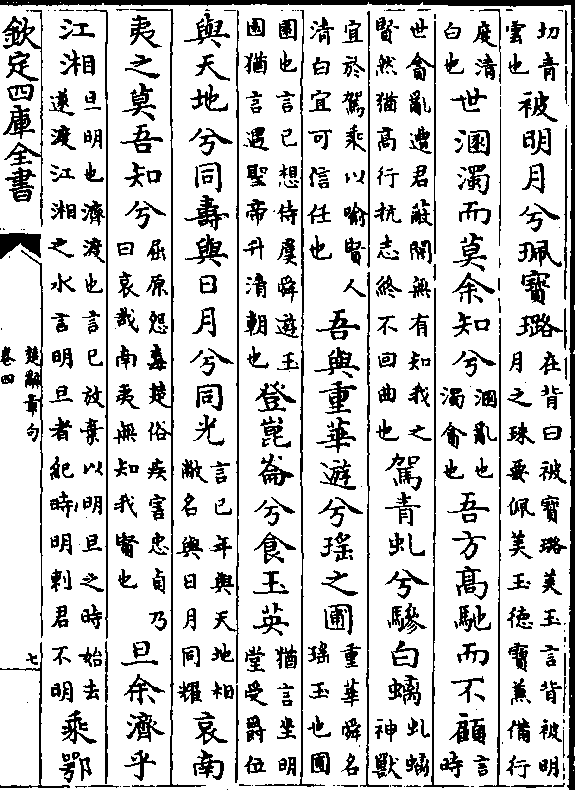 切青雲也被明月兮珮寶璐在背曰被寶璐美玉言背被明月之珠要佩美玉德寶兼備行
度清白也世溷濁而莫余知兮溷亂也濁貪也吾方高馳而不顧言時
世貪亂遭君蔽闇無有知我之賢然猶高行抗志終不回曲也駕青虬兮驂白螭虬螭神獸
宜於駕乘以喻賢人清白宜可信任也吾與重華遊兮瑤之圃重華舜名瑤玉也圃
園也言已想侍虞舜遊玉園猶言遇聖帝升清朝也登崑崙兮食玉英猶言坐明堂受爵位
與天地兮同壽與日月兮同光言已年與天地相敝名與日月同耀哀南
夷之莫吾知兮屈原怨毒楚俗疾害忠貞乃曰哀哉南夷無知我賢也旦余濟乎
江湘旦明也濟渡也言已放棄以明旦之時始去遂渡江湘之水言明旦者紀時明刺君不明乘鄂
欽定四庫全書
楚辭章句
卷四
七